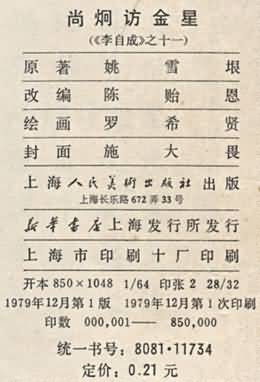 尚炯访金星
(《李自成》之十一)
原著 姚雪垠
改编 陈贻恩
绘画 罗希贤
封面 施大畏
上海人民美術出版社出版
上海长乐路 672 弄 33 号
新华書店上海发行所发行
上海市印刷十厂印刷
开本 850×1048 1/64 印张 2 28/32
1979年12月第1版 1979年12月第1次印刷
印数 000,001—— 850,000
统一书号: 8081·11734
定价: 0.21 元